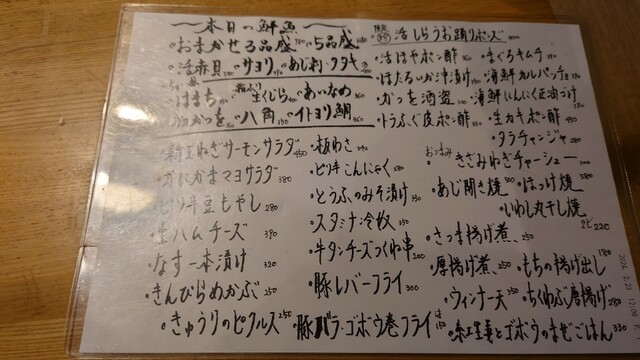 本日の鮮魚
・おまかせ3品盛 ・5品盛
・活赤貝 ・サヨリ ・あじ刺・タタキ
・はまち ・生くじら ・あいなめ
・初かつを ・八角 ・イトヨリ鯛
活しらうお踊りポーズ
・活ほやポン酢 ・まぐろキムチ
・ほたるいか沖漬け ・海鮮カルパッチョ
・かつを酒盗 ・海鮮にんにく正油づけ
・トラふぐ皮ポン酢 ・生カキポン酢
・タラチャンジャ
・新玉ねぎサーモンサラダ 450
・かにかまマヨサラダ 380
・ピリ辛豆もやし 280
・生ハムチーズ 390
・なす一本漬け 320
・きんぴらめかぶ 250
・きゅうりのピクルス 250
・板わさ
・ピリ辛こんにゃく 280
・とうふのみそ漬け 330
・スタミナ冷奴 350
・牛タンチーズつくね串 200
・豚レバーフライ 300
・豚バラ・ゴボウ巻フライ 150
おつまみ ・きざみねぎチャーシュー 300
・あじ開き焼 ・ほっけ焼
・いわし丸干し焼
2ヒ 220
・さつま揚げ煮 250
・厚揚げ煮 250 ・もちの揚げ出し 180
・ウィンナー天 350 ・ちくわぶ唐揚げ 280
・紅生姜とゴボウのまぜごはん 330